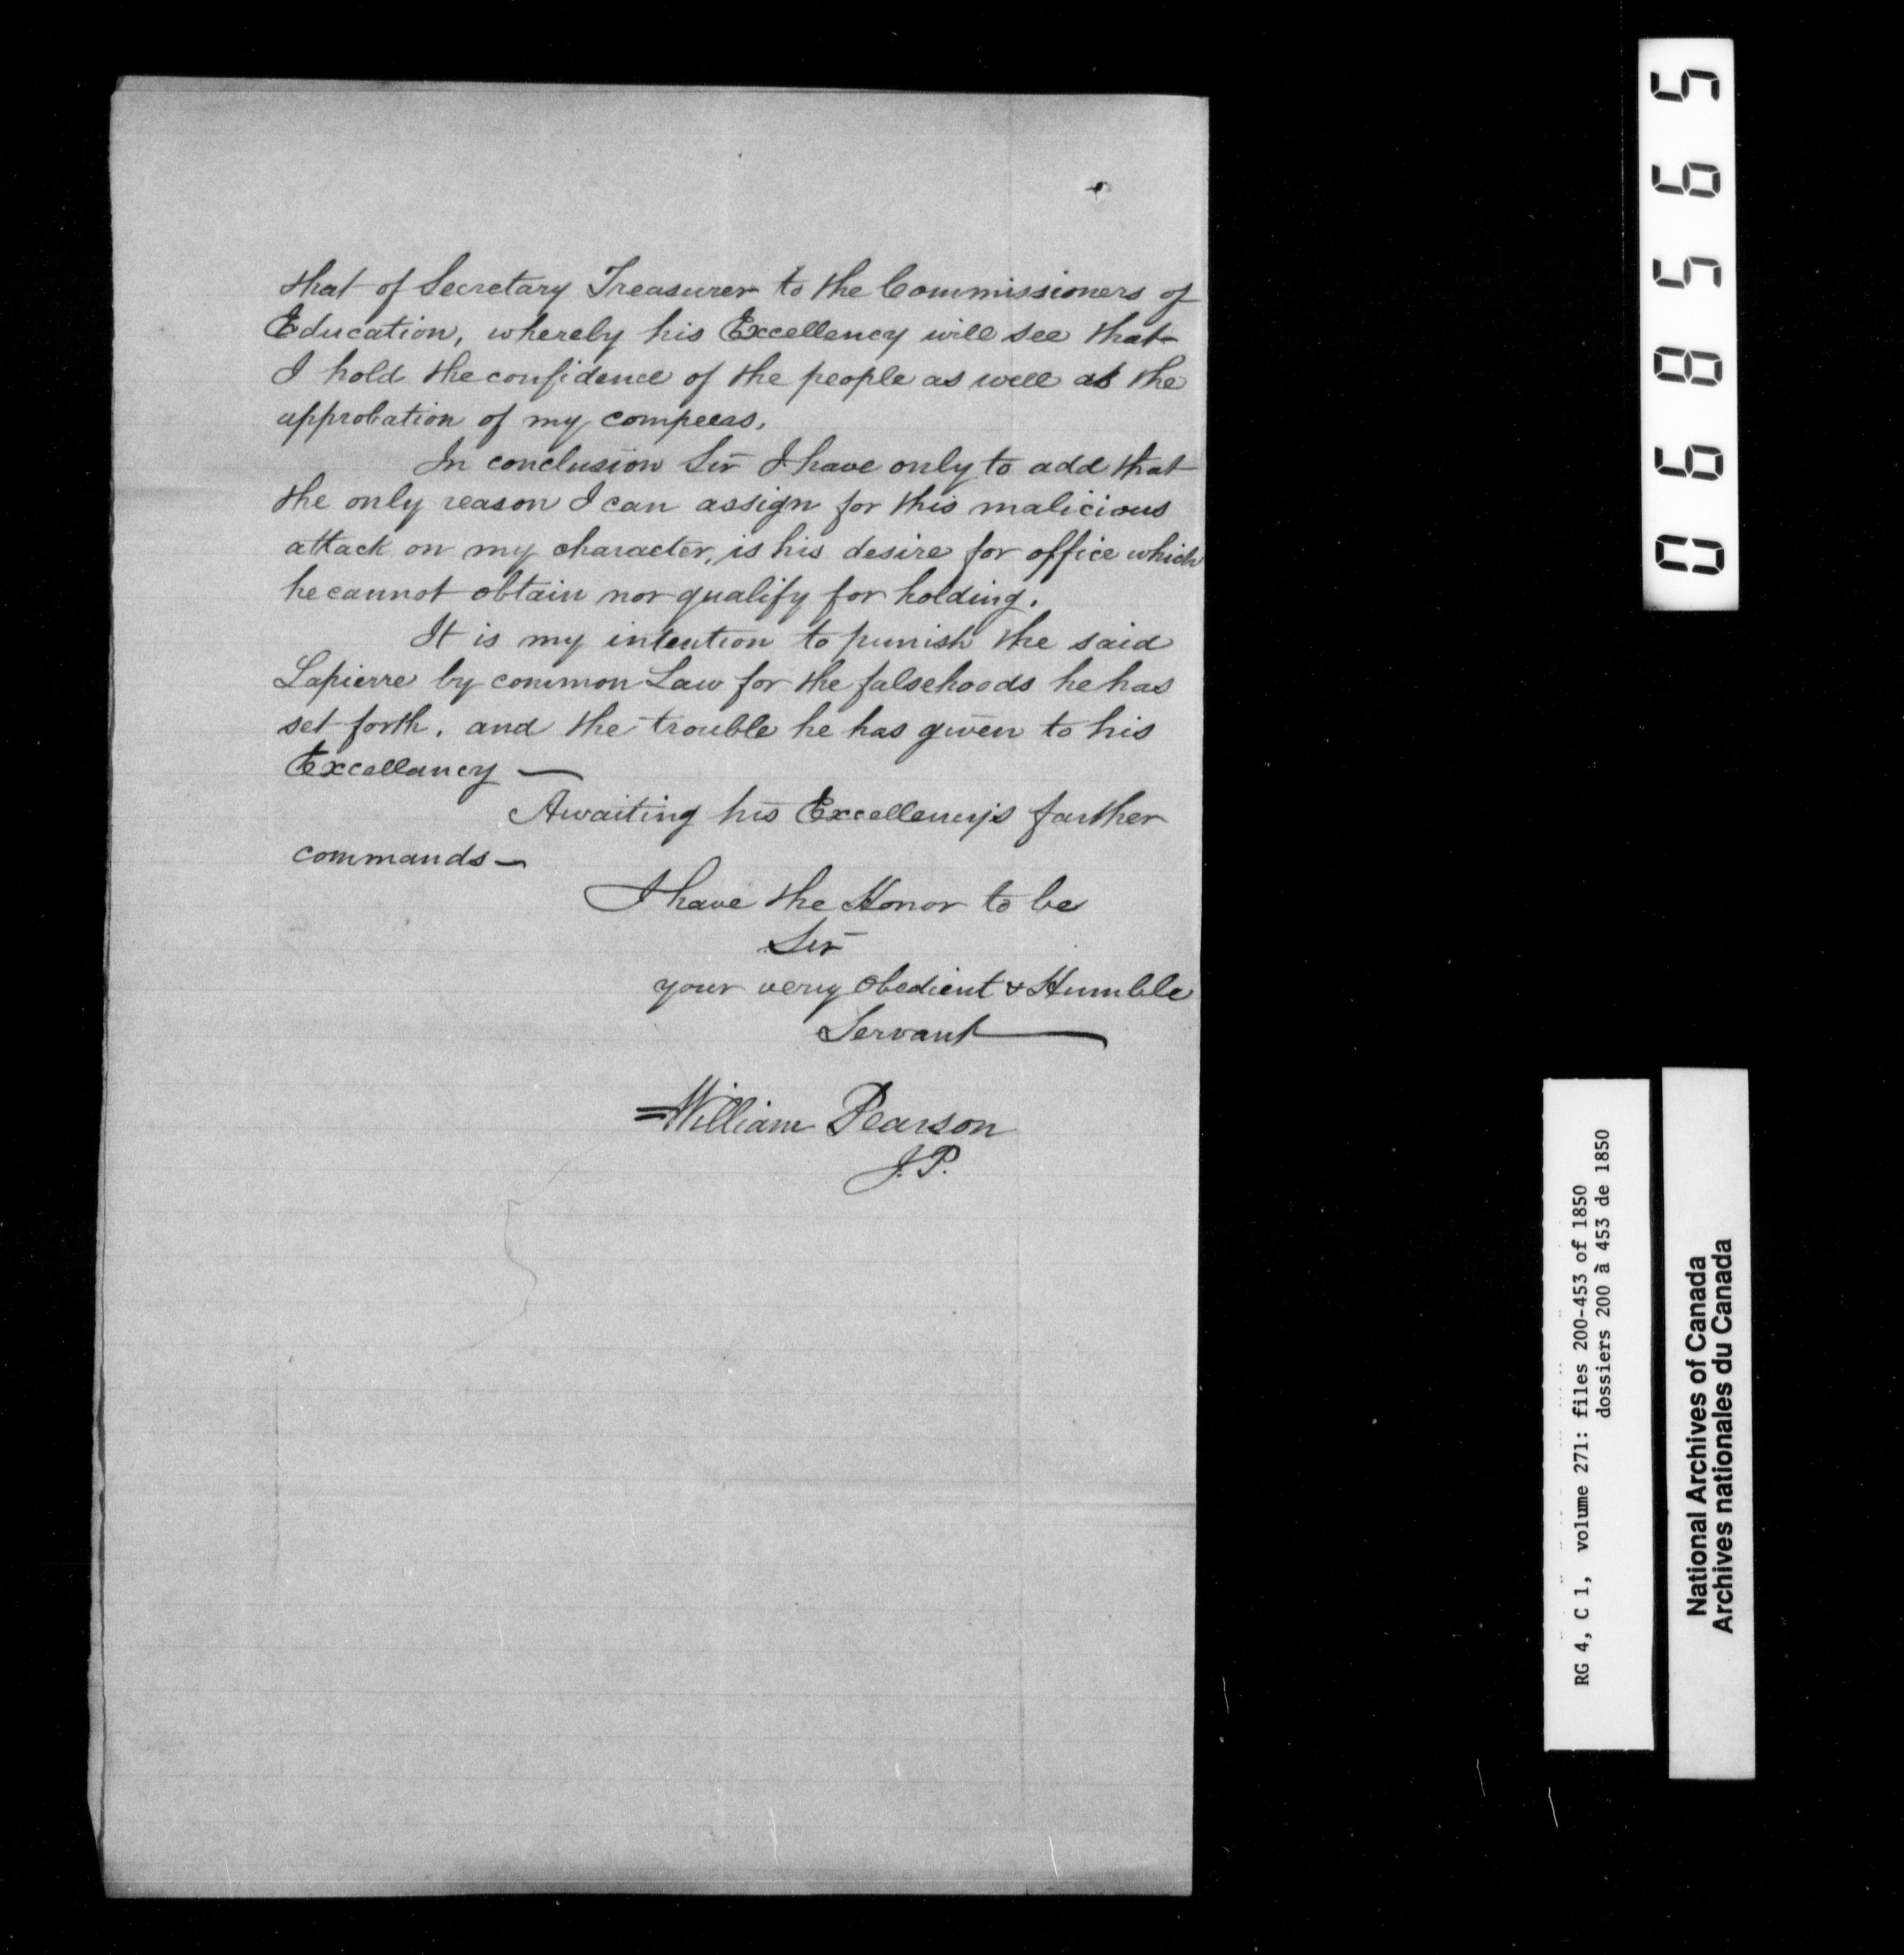 that of Secretary Treasurer to the Commissioners of
Education, whereby his Excellency will see that
I hold the confidence of the people as well as the
approbation of my compeeas,
In conclusion Sir I have only to add that
the only reason I can assign for this malicious
attack on my character, is his desire for office which
he cannot obtain nor qualify for holding.
It is my intention to punish the said
Lapierre by common Law for the falsehoods he has
set forth, and the trouble he has given to his
Excellancy —
Awaiting his Excellency's farther
commands —
I have the Honor to be
Sir
your very Obedient & Humble
Servant
William Pearson
J.P.
068565
RG 4, C 1, volume 271: files 200-453 of 1850
dossiers 200 à 453 de 1850
National Archives of Canada
Archives nationales du Canada